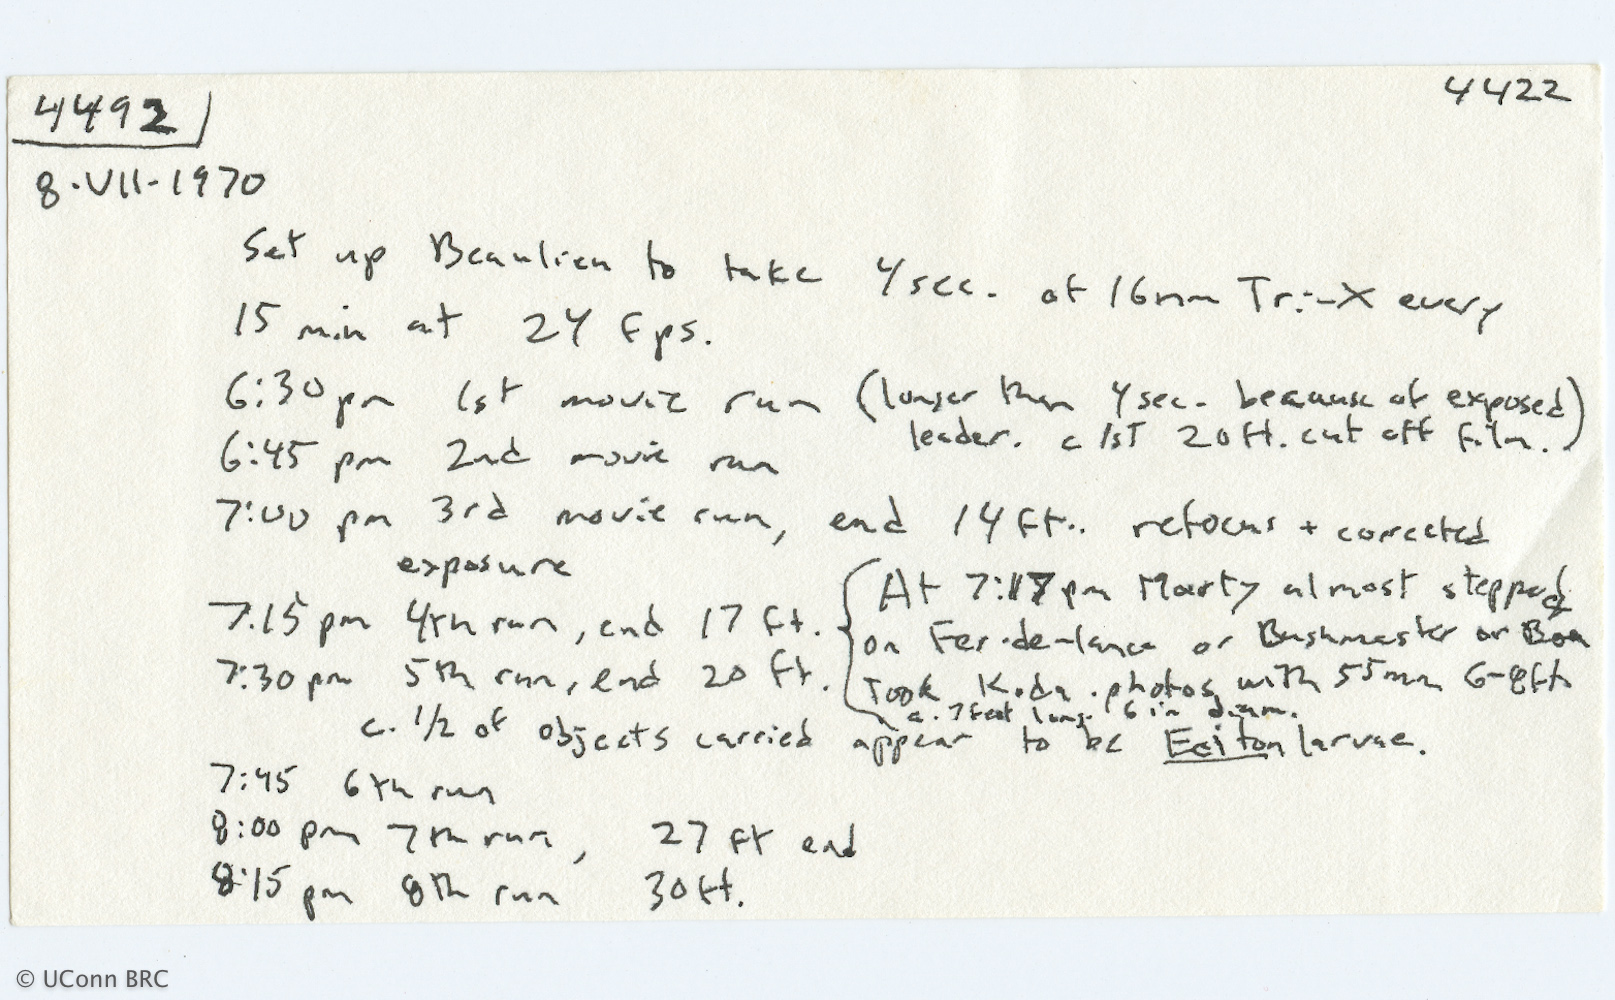 4492
4422
8·VII-1970
Set up Beaulieu to take 4 sec. of 16mm Tri-X every
15 min at 24 fps.
6:30 pm 1st movie run (longer than 4 sec. because of exposed
leader. c 1st 20 ft. cut off film.)
6:45 pm 2nd movie run
7:00 pm 3rd movie run, end 14 ft.. refocus + corrected
exposure
7:15 pm 4th run, end 17 ft.
7:30 pm 5th run, end 20 ft.
{At 7:17 pm Marty almost stepped
on Fer-de-lance or Bushmaster or Boa
Took Koda. photos with 55mm 6-8ft
c. 7 feet long 6 in diam.
c. 1/2 of objects carried appear to be Eciton larvae.
7:45 6th run
8:00 pm 7th run, 27 ft end
8:15 pm 8th run 30 ft.
© UConn BRC